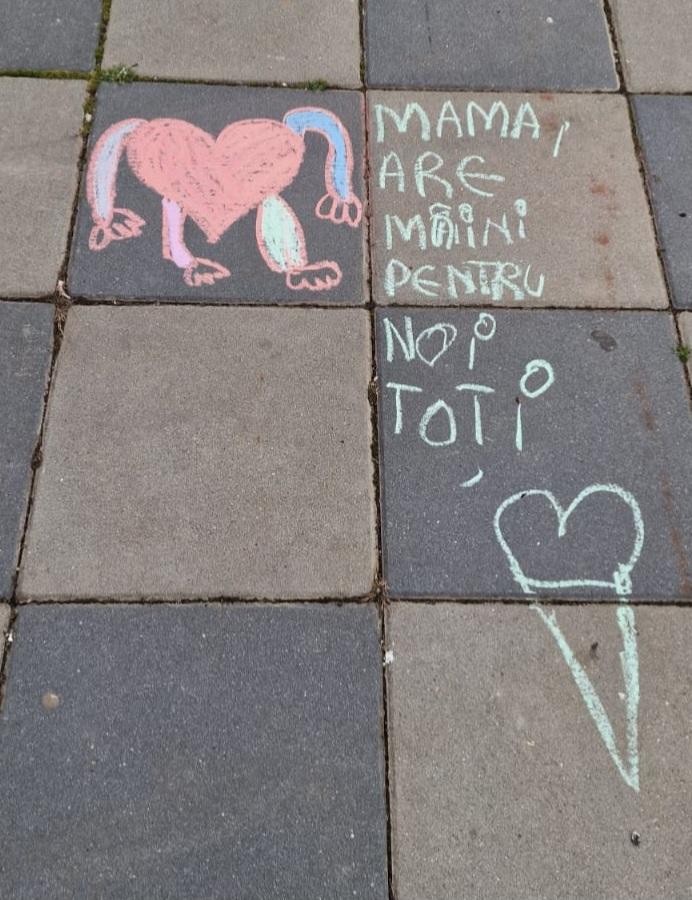 MAMA,
ARE
MÂINI
PENTRU
NOI
TOȚI